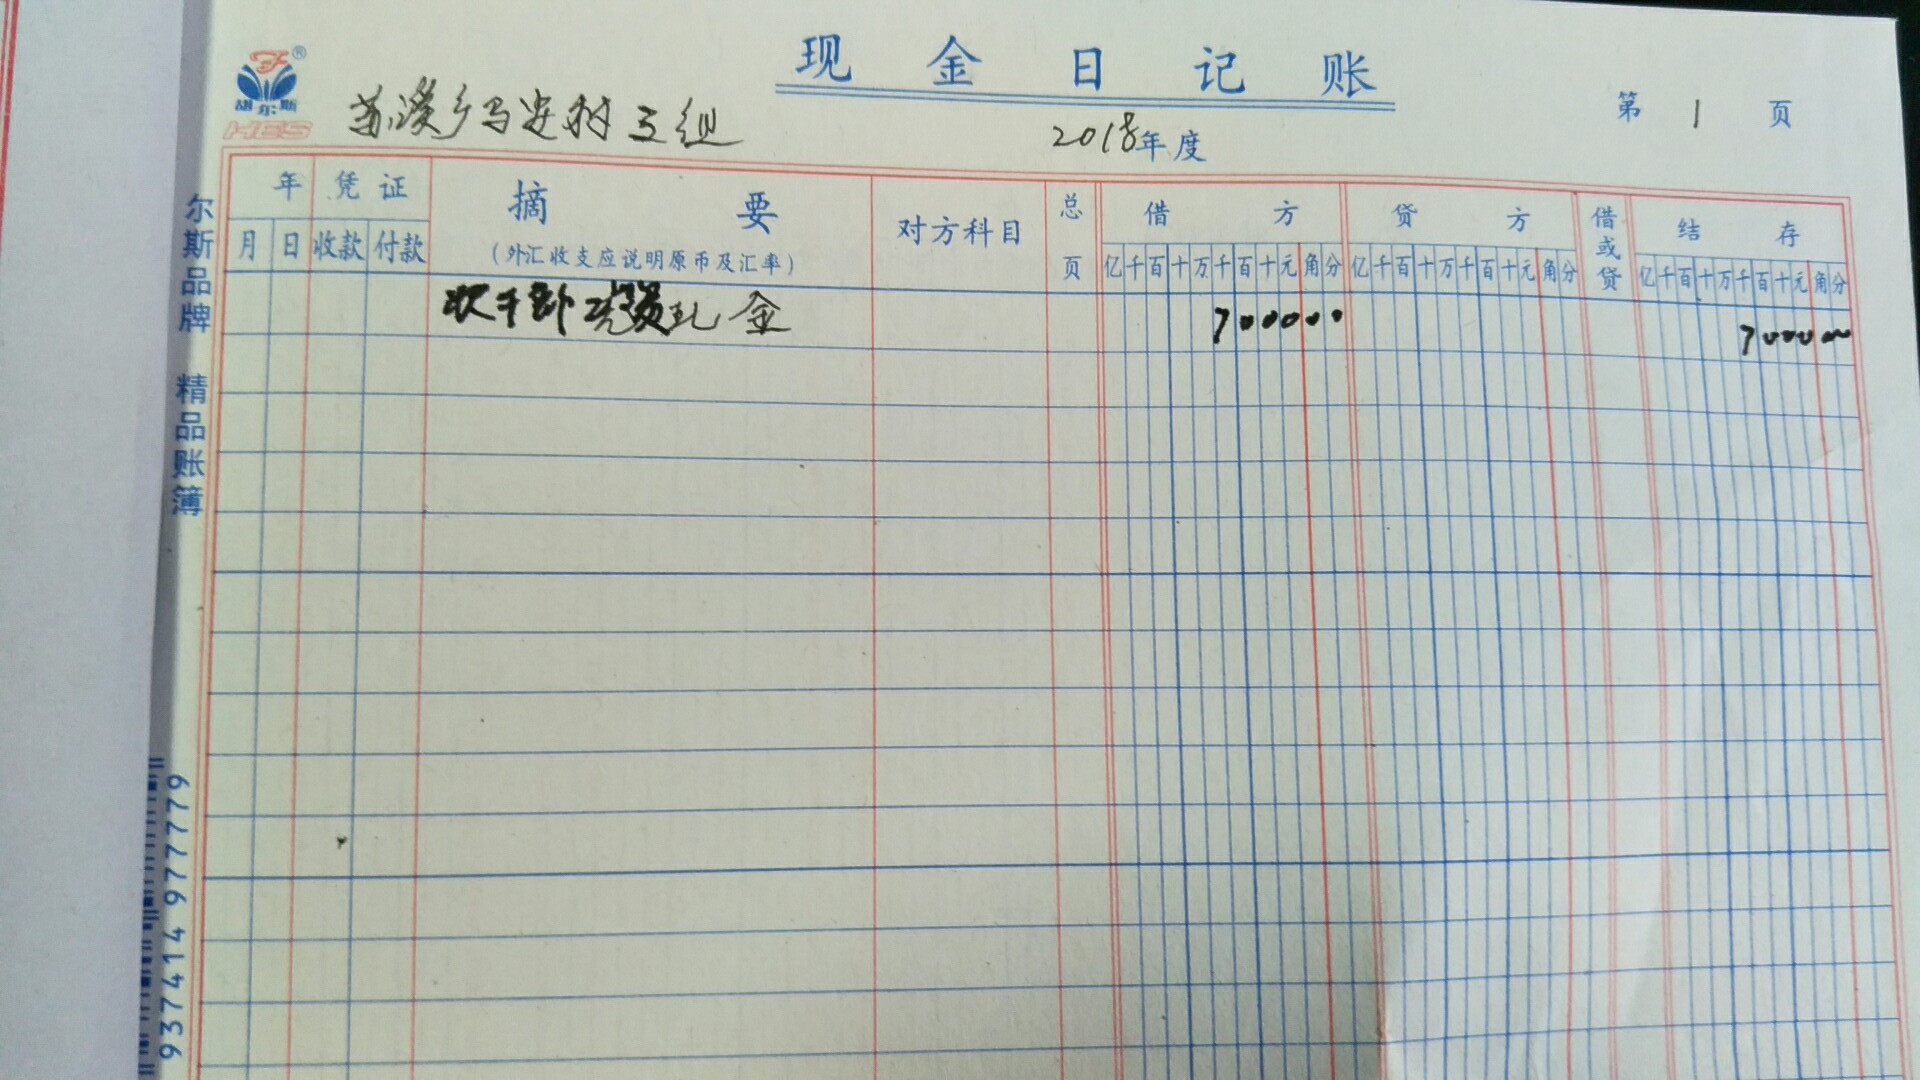 现金日记账
胡尔斯
HES
苏溪乡马安村三组
2018年度
第 1 页
年 凭证 摘要 对方科目 总页 借方 贷方 借或贷 结存
月 日 收款 付款 (外汇收支应说明原币及汇率) 亿千百十万千百十元角分 亿千百十万千百十元角分 亿千百十万千百十元角分
金 700000 700000
尔斯品牌 精品账簿
937414 9777779